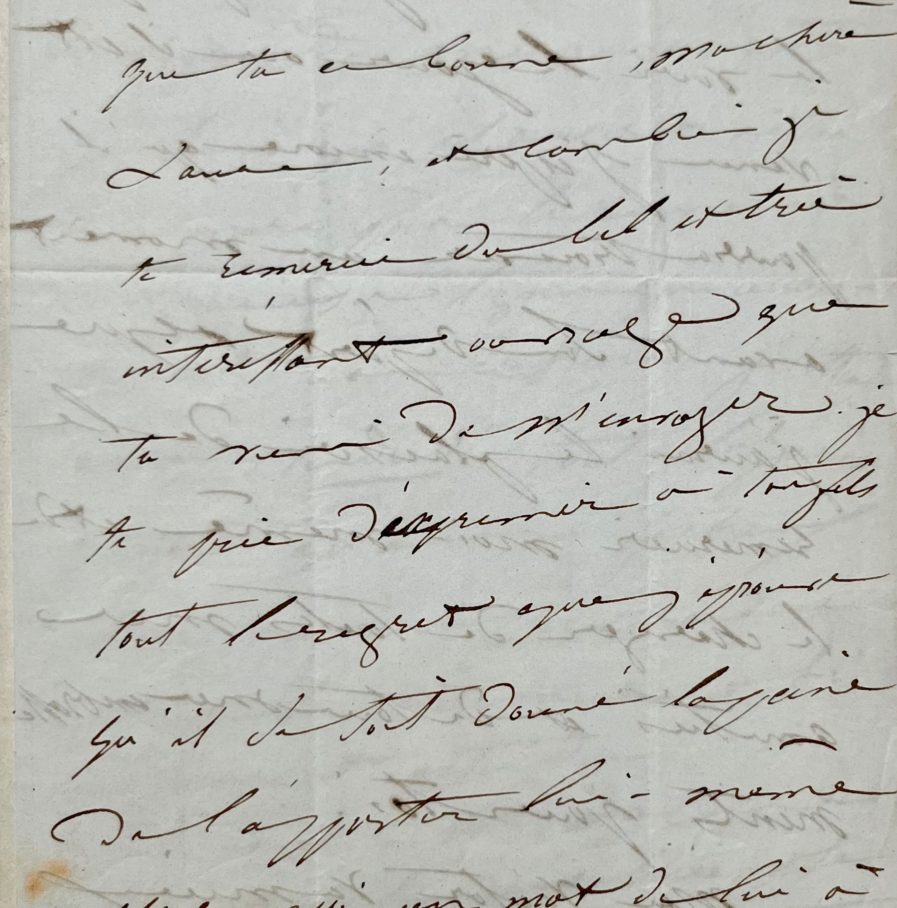 que tu es bonne, ma chère
Laure, et combien je
te remercie du bel et très
intéressant ouvrage que
tu viens de m'envoyer. je
te prie d'exprimer à ton fils
tout le regret que j'éprouve
qu'il se soit donné la peine
de l'apporter lui-même
un mot de lui à